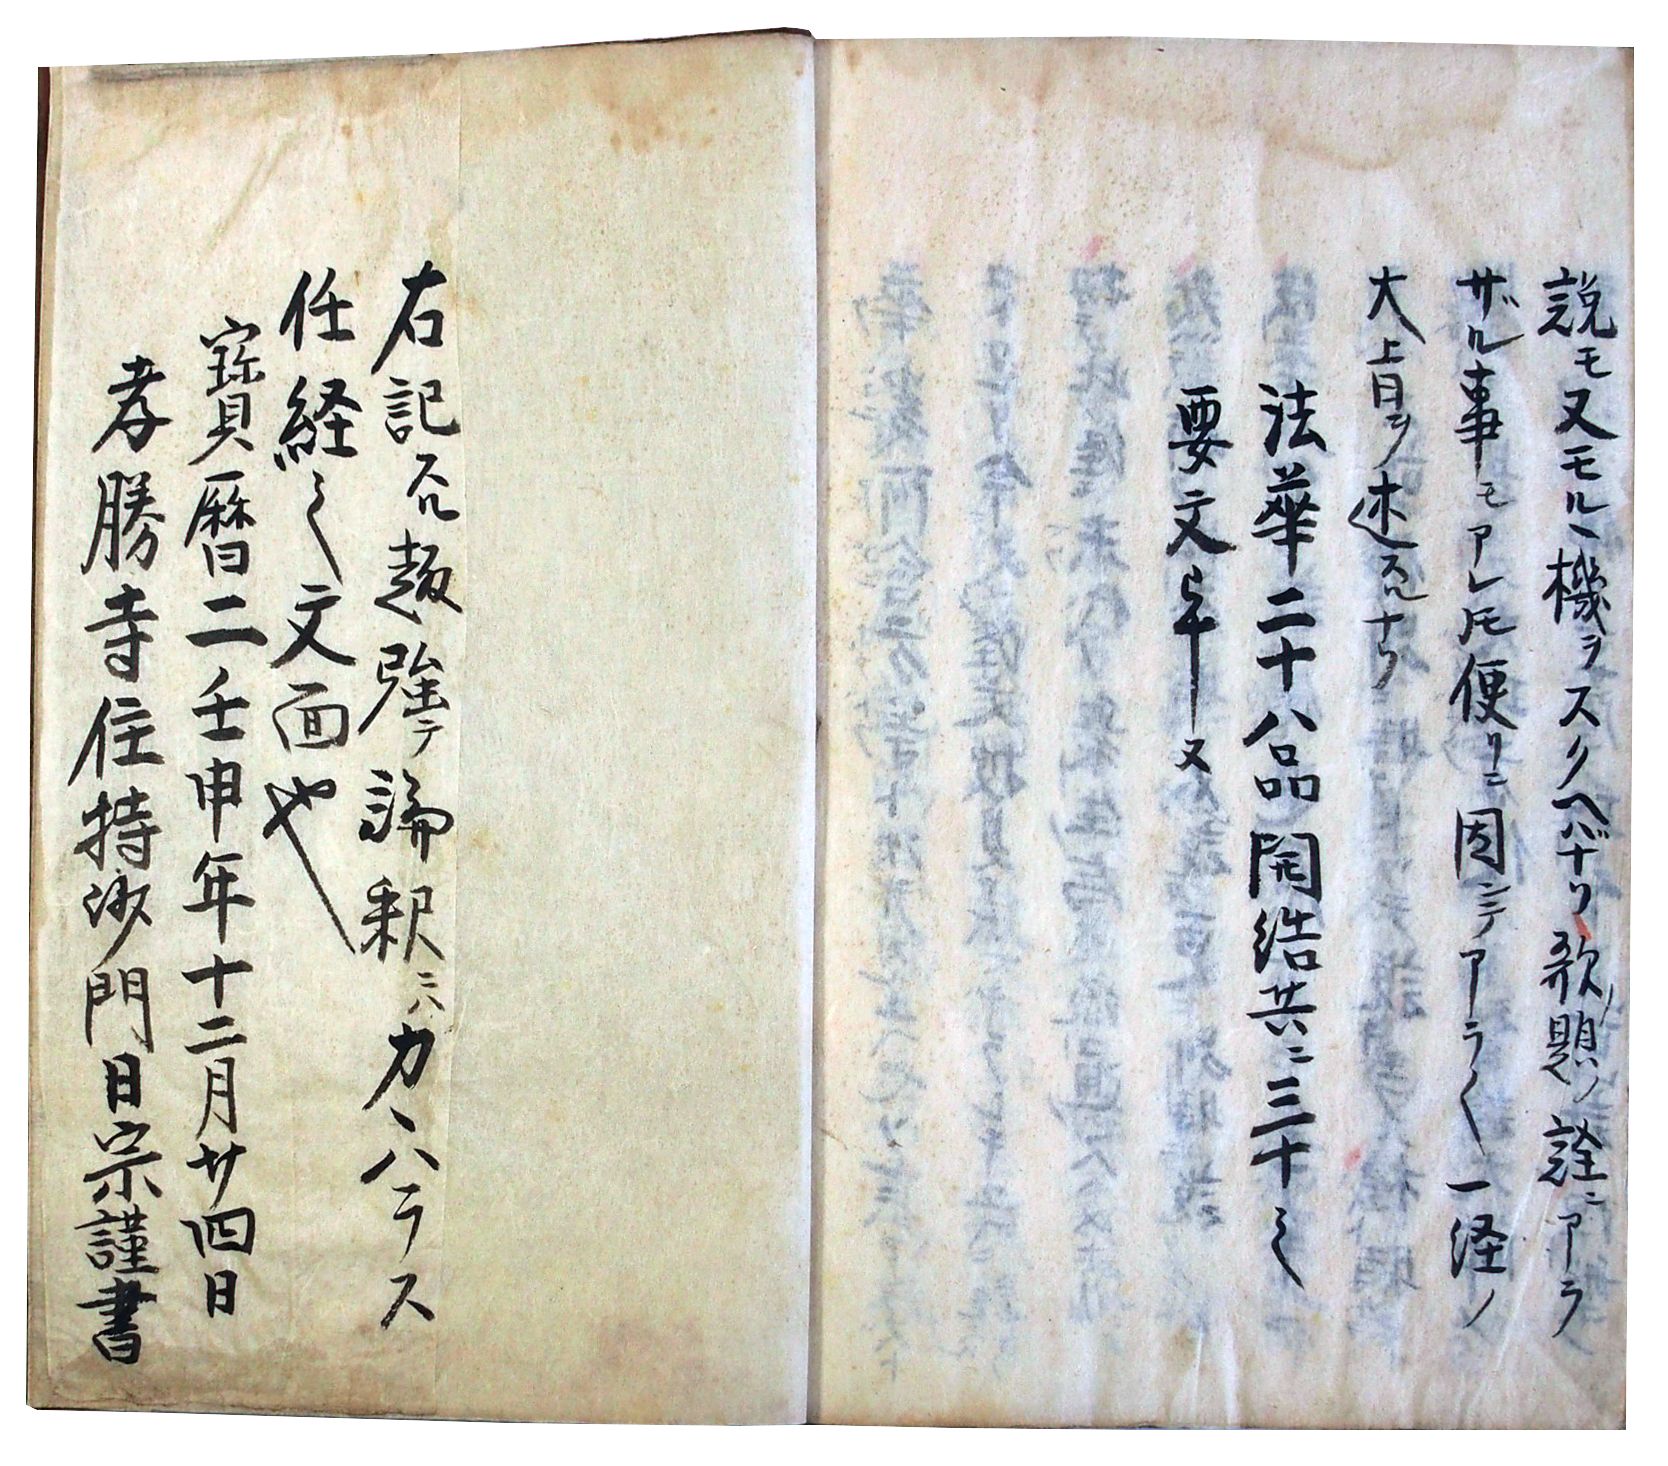 説モ又モル丶機ヲスクノヘバナリ歌ノ題ノ詮ニアラ
ザル事モアレ𪜈便リニ因ニテアラ〱一経ノ
大旨ヲ述ルナリ
法華二十八品開結共ニ三十之
要文畢又
右記ス趣強テ論釈ニハカ丶ハラス
任経之文面也
寳暦二壬申年十二月廿四日
孝勝寺住持沙門日宗謹書